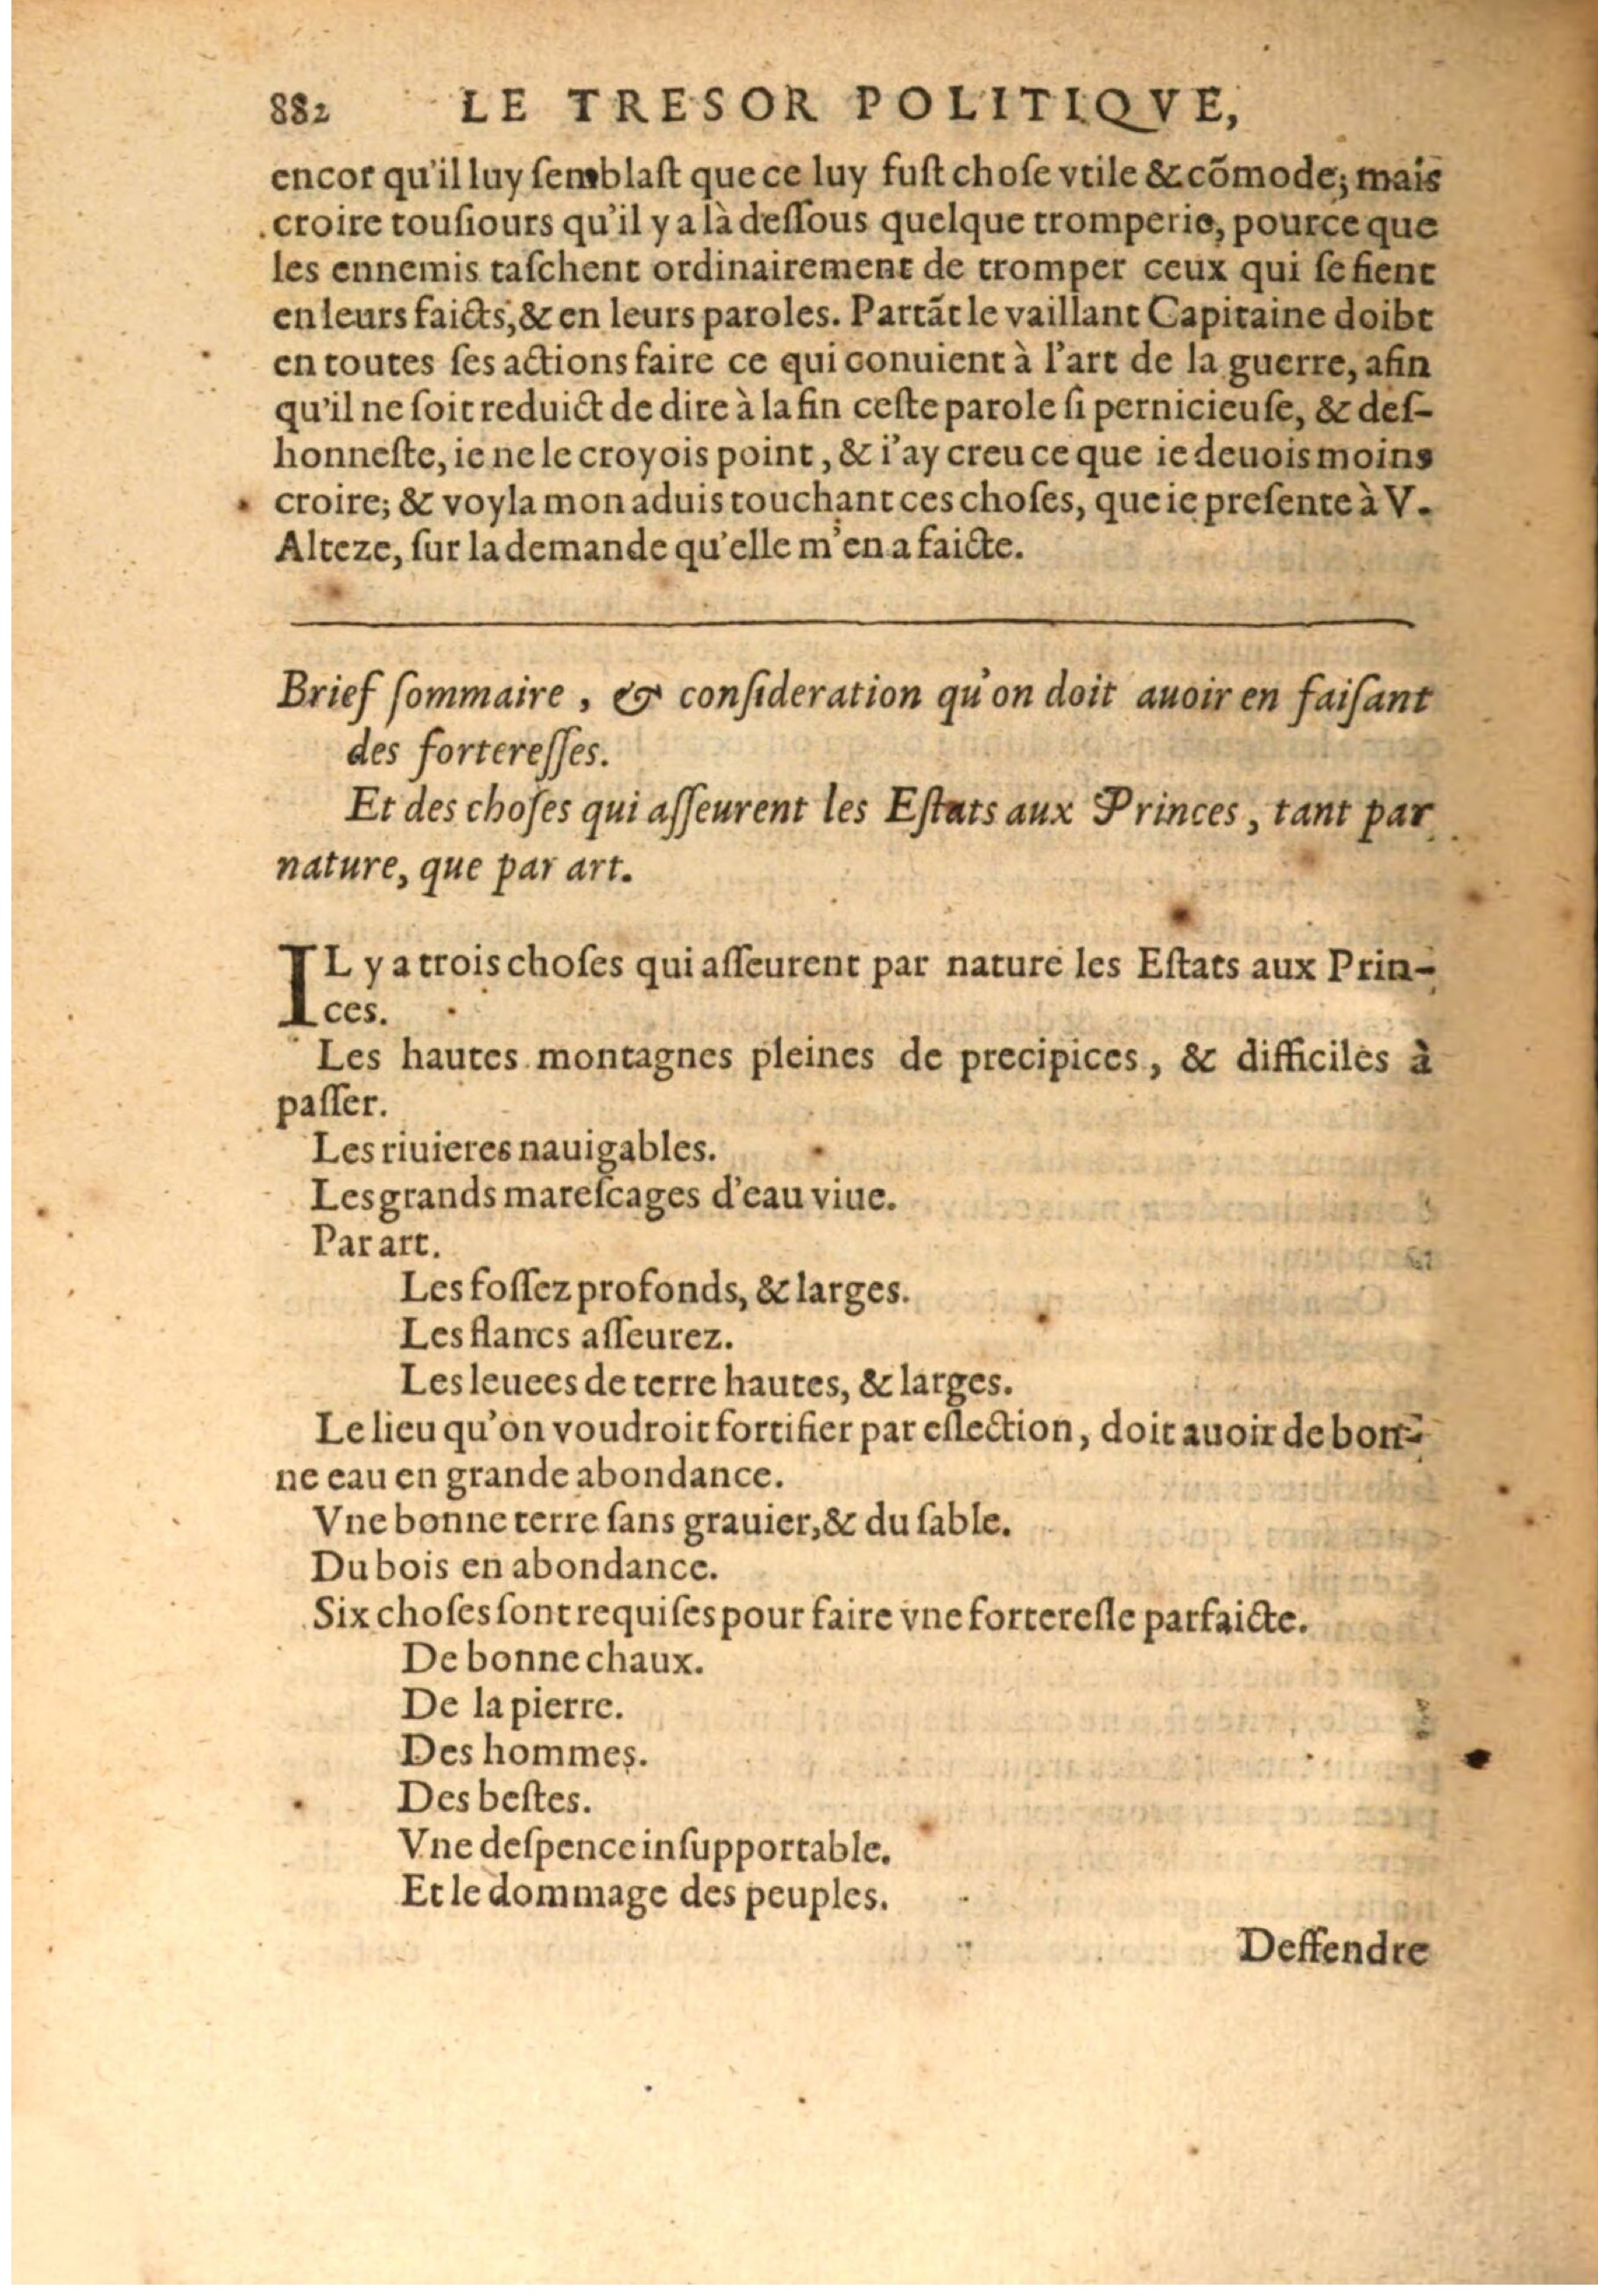 882 LE TRESOR POLITIQVE,
encor qu'il luy semblast que ce luy fust chose vtile & cõmode; mais
croire tousiours qu'il y a là dessous quelque tromperie, pource que
les ennemis taschent ordinairement de tromper ceux qui se fient
en leurs faicts, & en leurs paroles. Partãt le vaillant Capitaine doibt
en toutes ses actions faire ce qui conuient à l'art de la guerre, afin
qu'il ne soit reduict de dire à la fin ceste parole si pernicieuse, & des-
honneste, ie ne le croyois point, & i'ay creu ce que ie deuois moins
croire; & voyla mon aduis touchant ces choses, que ie presente à V.
Alteze, sur la demande qu'elle m'en a faicte.
Brief sommaire, & consideration qu'on doit auoir en faisant
des forteresses.
Et des choses qui asseurent les Estats aux Princes, tant par
nature, que par art.
IL y a trois choses qui asseurent par nature les Estats aux Prin-
ces.
Les hautes montagnes pleines de precipices, & difficiles à
passer.
Les riuieres nauigables.
Les grands marescages d'eau viue.
Par art.
Les fossez profonds, & larges.
Les flancs asseurez.
Les leuees de terre hautes, & larges.
Le lieu qu'on voudroit fortifier par eslection, doit auoir de bon-
ne eau en grande abondance.
Vne bonne terre sans grauier, & du sable.
Du bois en abondance.
Six choses sont requises pour faire vne forteresse parfaicte.
De bonne chaux.
De la pierre.
Des hommes.
Des bestes.
Vne despence insupportable.
Et le dommage des peuples.
Deffendre